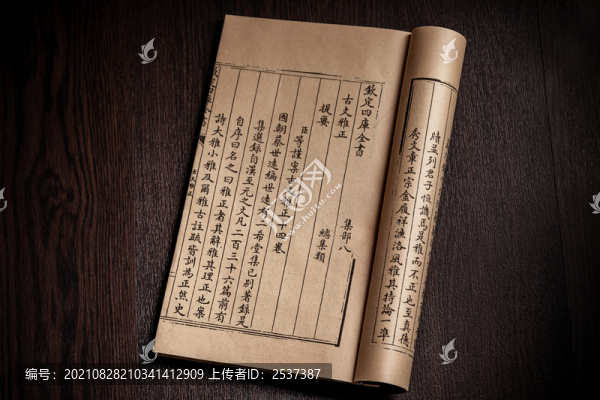 欽定四庫全書
集部八
古文雅正
總集類
提要
臣等謹案古文雅正十四卷
國朝蔡世遠編世遠有二希堂集已别著錄是
集選錄自漢至元之文凡二百三十六篇前有
自序曰名之曰雅正者其辭雅其理正也案
詩大雅小雅及爾雅古註疏皆訓為正然史
時並列君子恆譏焉是雅而不正也至真德
秀文章正宗金履祥濂洛風雅其持論一準
编号：20210828210341412909 上传者ID：2537387